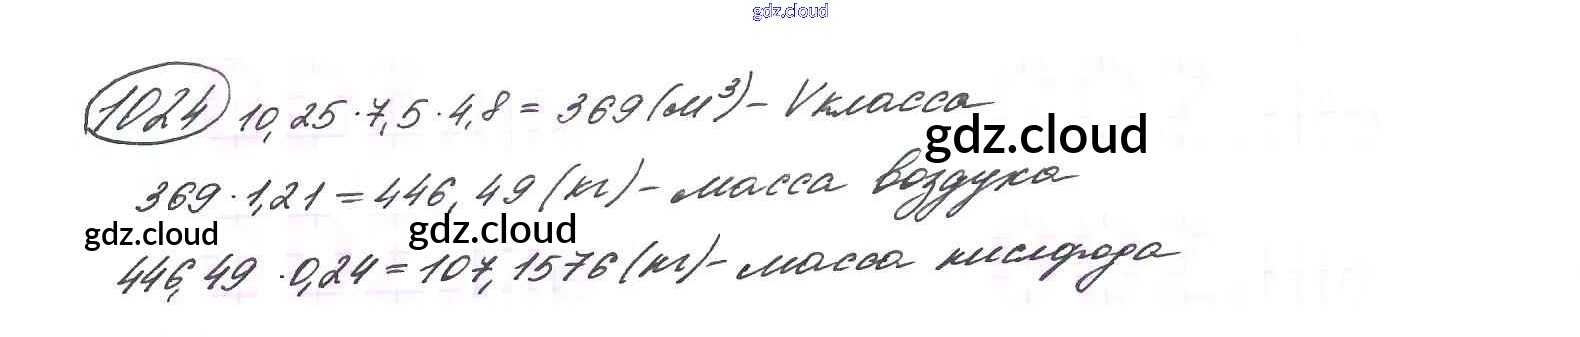 gdz.cloud
1024 10,25·7,5·4,8 = 369 (м³) - V класса
gdz.cloud
369·1,21 = 446,49 (кг) - масса воздуха
gdz.cloud
gdz.cloud
446,49·0,24 = 107,1576 (кг) - масса кислорода